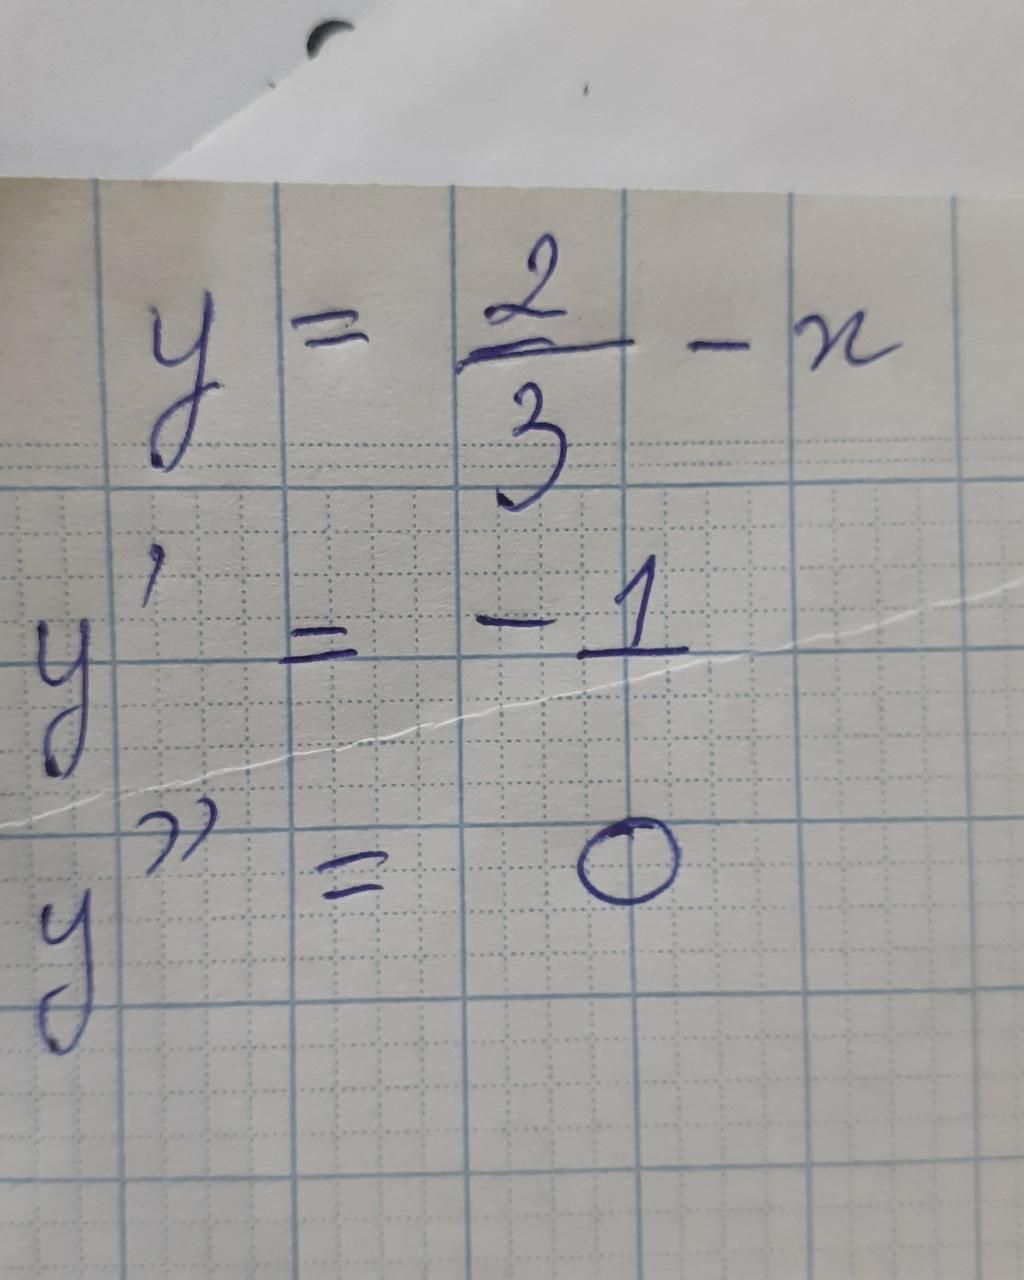 y = 2/3 - x
y' = - 1
y'' = 0